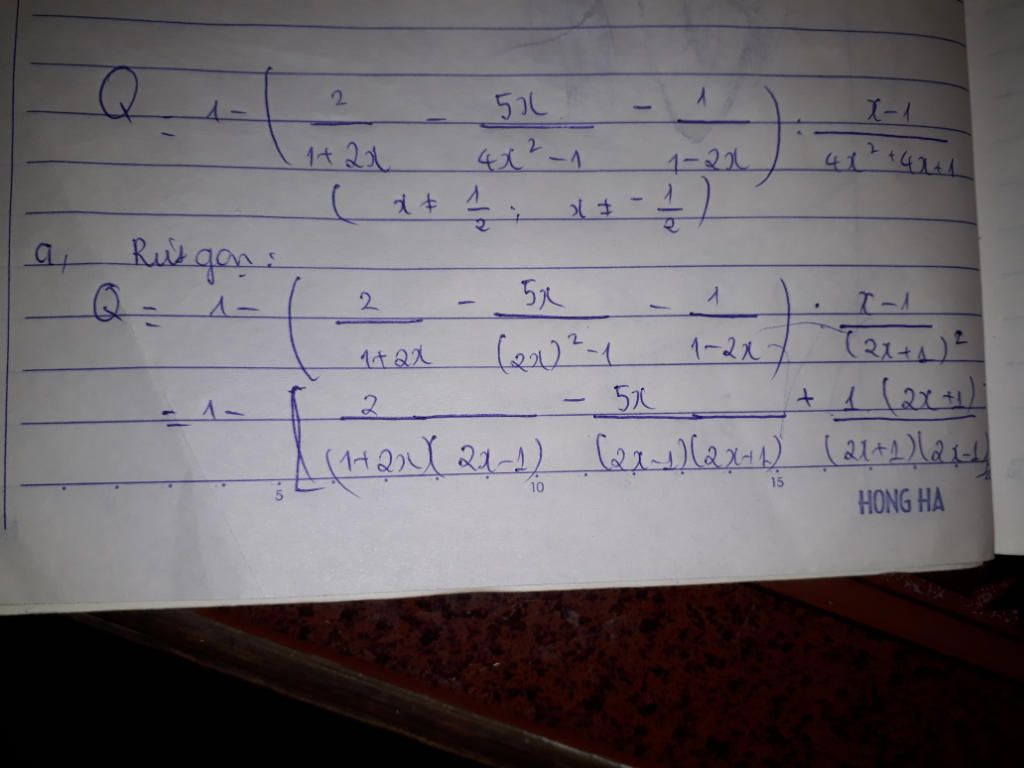 Q = 1 - ( 2/(1+2x) - 5x/(4x² - 1) - 1/(1-2x) ) : (x-1)/(4x² + 4x + 1)
( x ≠ 1/2 ; x ≠ - 1/2 )
a, Rút gọn :
Q = 1 - ( 2/(1+2x) - 5x/((2x)² - 1) - 1/(1-2x) ) . (x-1)/(2x+1)²
= 1 - [ 2/((1+2x)(2x-1)) - 5x/((2x-1)(2x+1)) + 1(2x+1)/((2x+1)(2x-1))
5 10 15
HONG HA